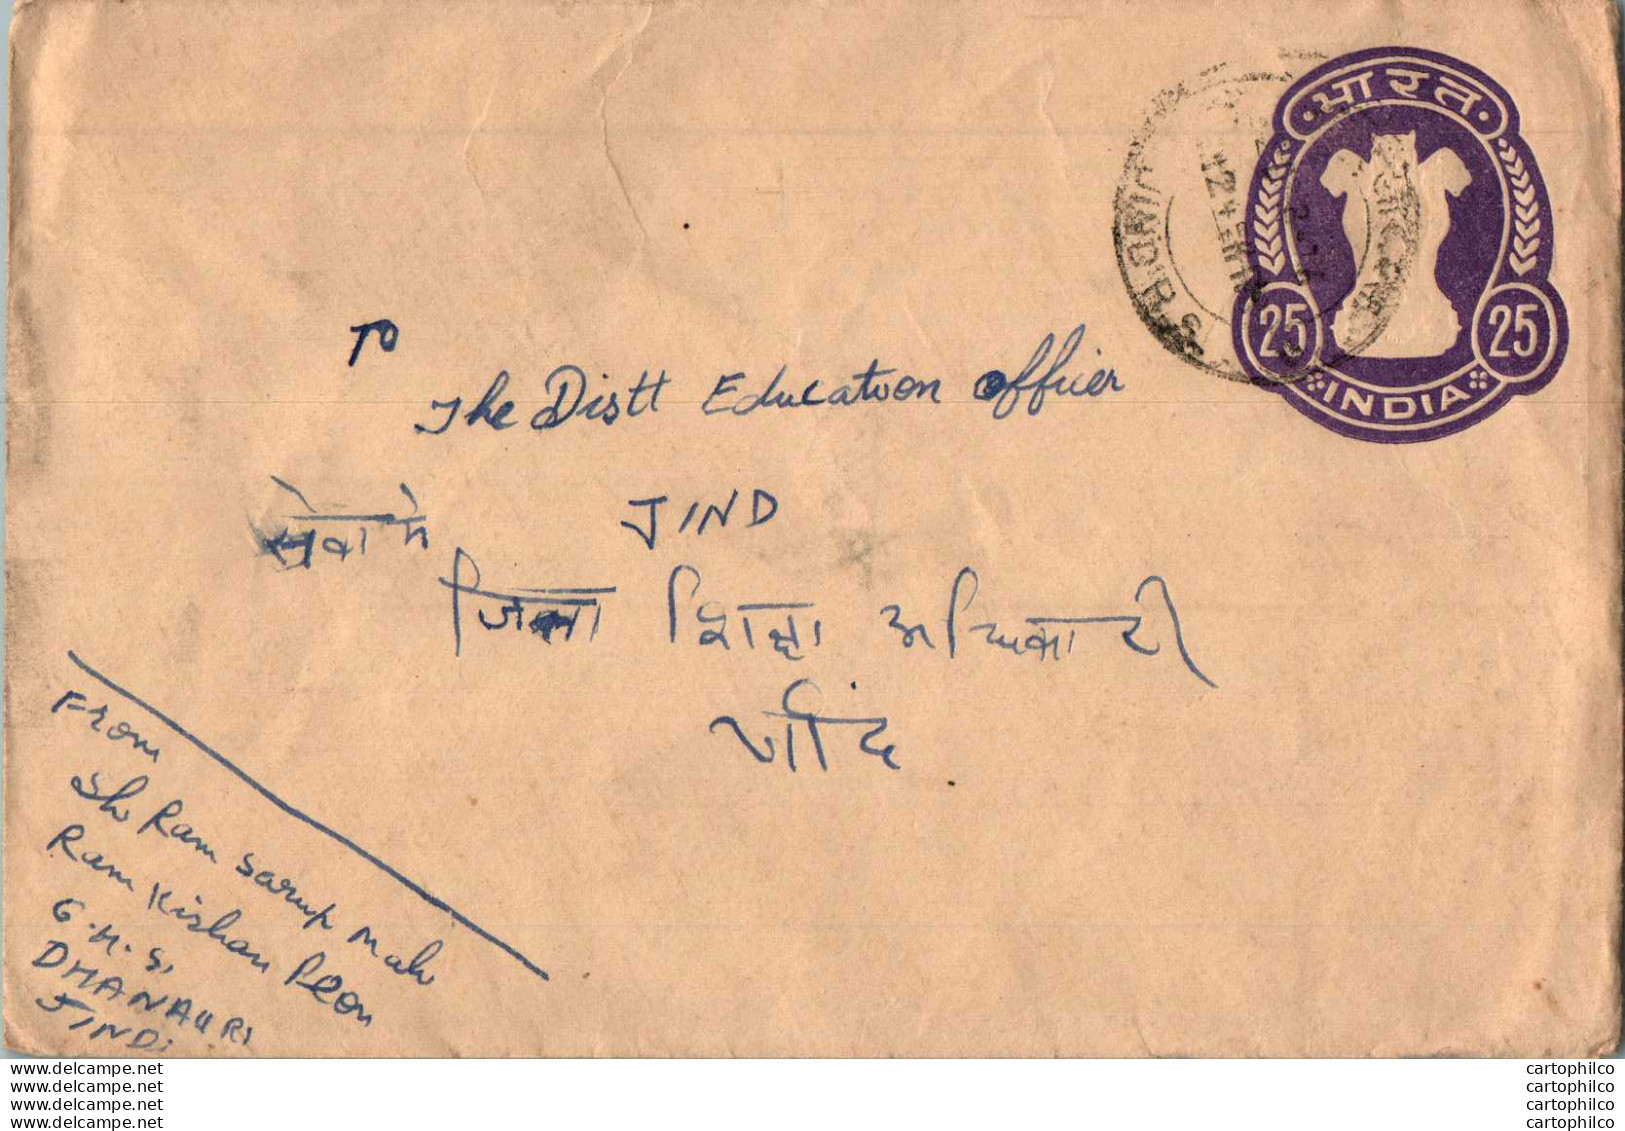 भारत
25 25
INDIA
JIND R.S.
To
The Distt Education Officer
JIND
सेवा मे
जिला शिक्षा अधिकारी
जींद
From
Sh Ram Sarup Mali
Ram Kishan Peon
G.H.S.
DHANAURI
JIND
www.delcampe.net cartophilco
www.delcampe.net cartophilco
www.delcampe.net cartophilco
www.delcampe.net cartophilco